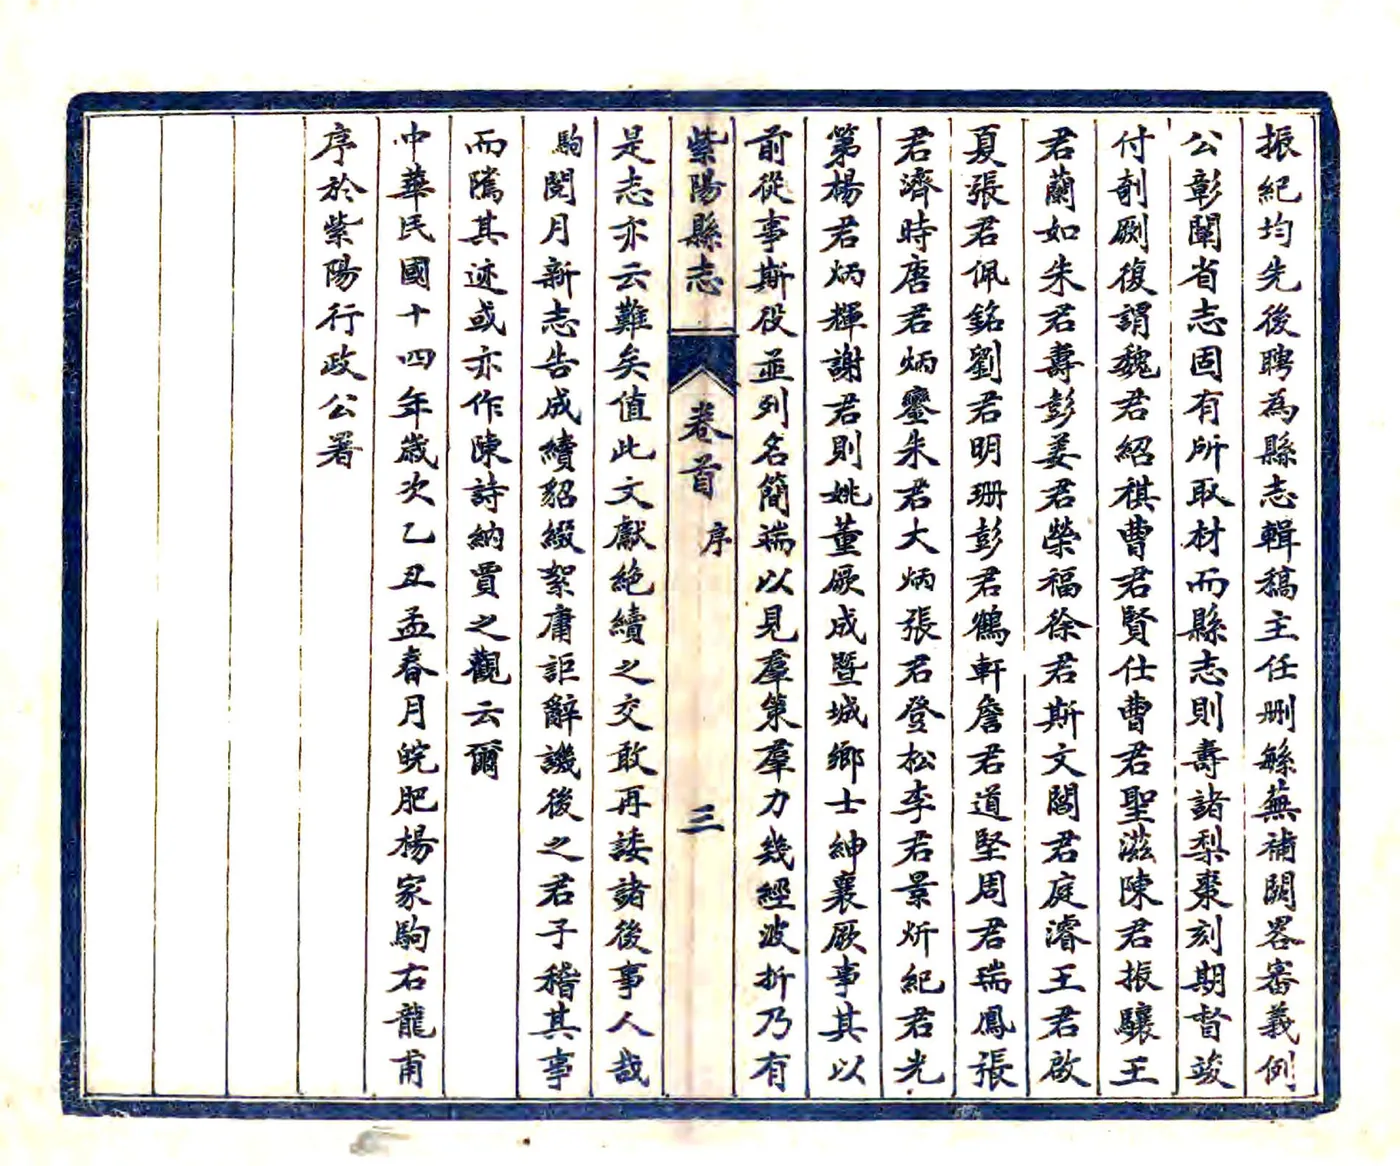 振紀均先後聘為縣志輯稿主任刪緐蕪補闕畧審義例
公彰闡省志固有所取材而縣志則壽諸梨棗刻期督竣
付剞劂復謂魏君紹祺曹君賢仕曹君聖滋陳君振驤王
君蘭如朱君壽彭姜君榮福徐君斯文閻君庭濬王君啟
夏張君佩銘劉君明珊彭君鶴軒詹君道堅周君瑞鳳張
君濟時唐君炳鑾朱君大炳張君登松李君景炘紀君光
第楊君炳輝謝君則姚董厥成暨城鄉士紳襄厥事其以
前從事斯役並列名簡端以見羣策羣力幾經波折乃有
紫陽縣志 卷首 序 三
是志亦云難矣值此文獻絶續之交敢再諉諸後事人哉
駒閱月新志告成續貂綴絮庸詎辭譏後之君子稽其事
而隲其迹或亦作陳詩納賈之觀云爾
中華民國十四年歲次乙丑孟春月皖肥楊家駒右龍甫
序於紫陽行政公署